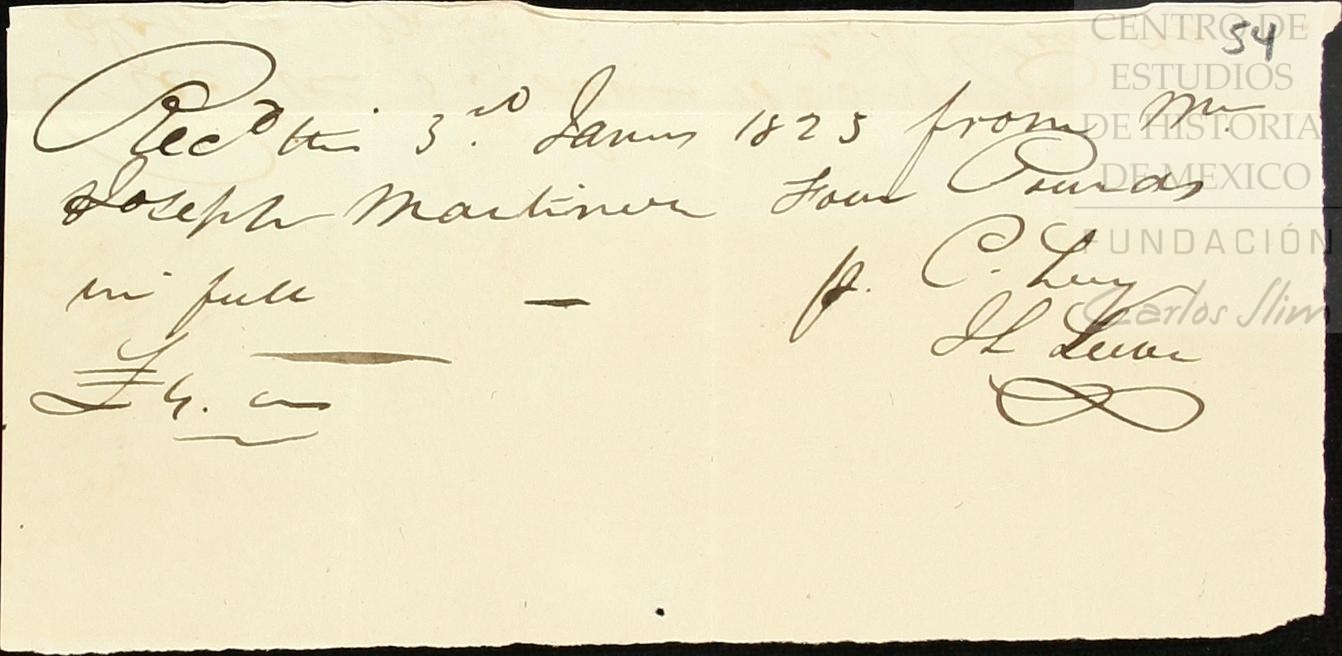 54
Recd this 3rd Jany 1825 from Mr
Joseph Martinez Four Pounds
in full — p. C. Levy
£4.
CENTRO DE
ESTUDIOS
DE HISTORIA
DE MEXICO
FUNDACIÓN
Carlos Slim